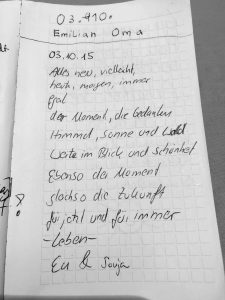 03.10.
Emilian Oma
03.10.15
Alles neu, vielleicht,
heute, morgen, immer
egal
der Moment, die Gedanken
Himmel, Sonne und Wald
Weite im Blick und Schönheit
Ebenso der Moment
die Zukunft
für jetzt und für immer
-Leben-
&